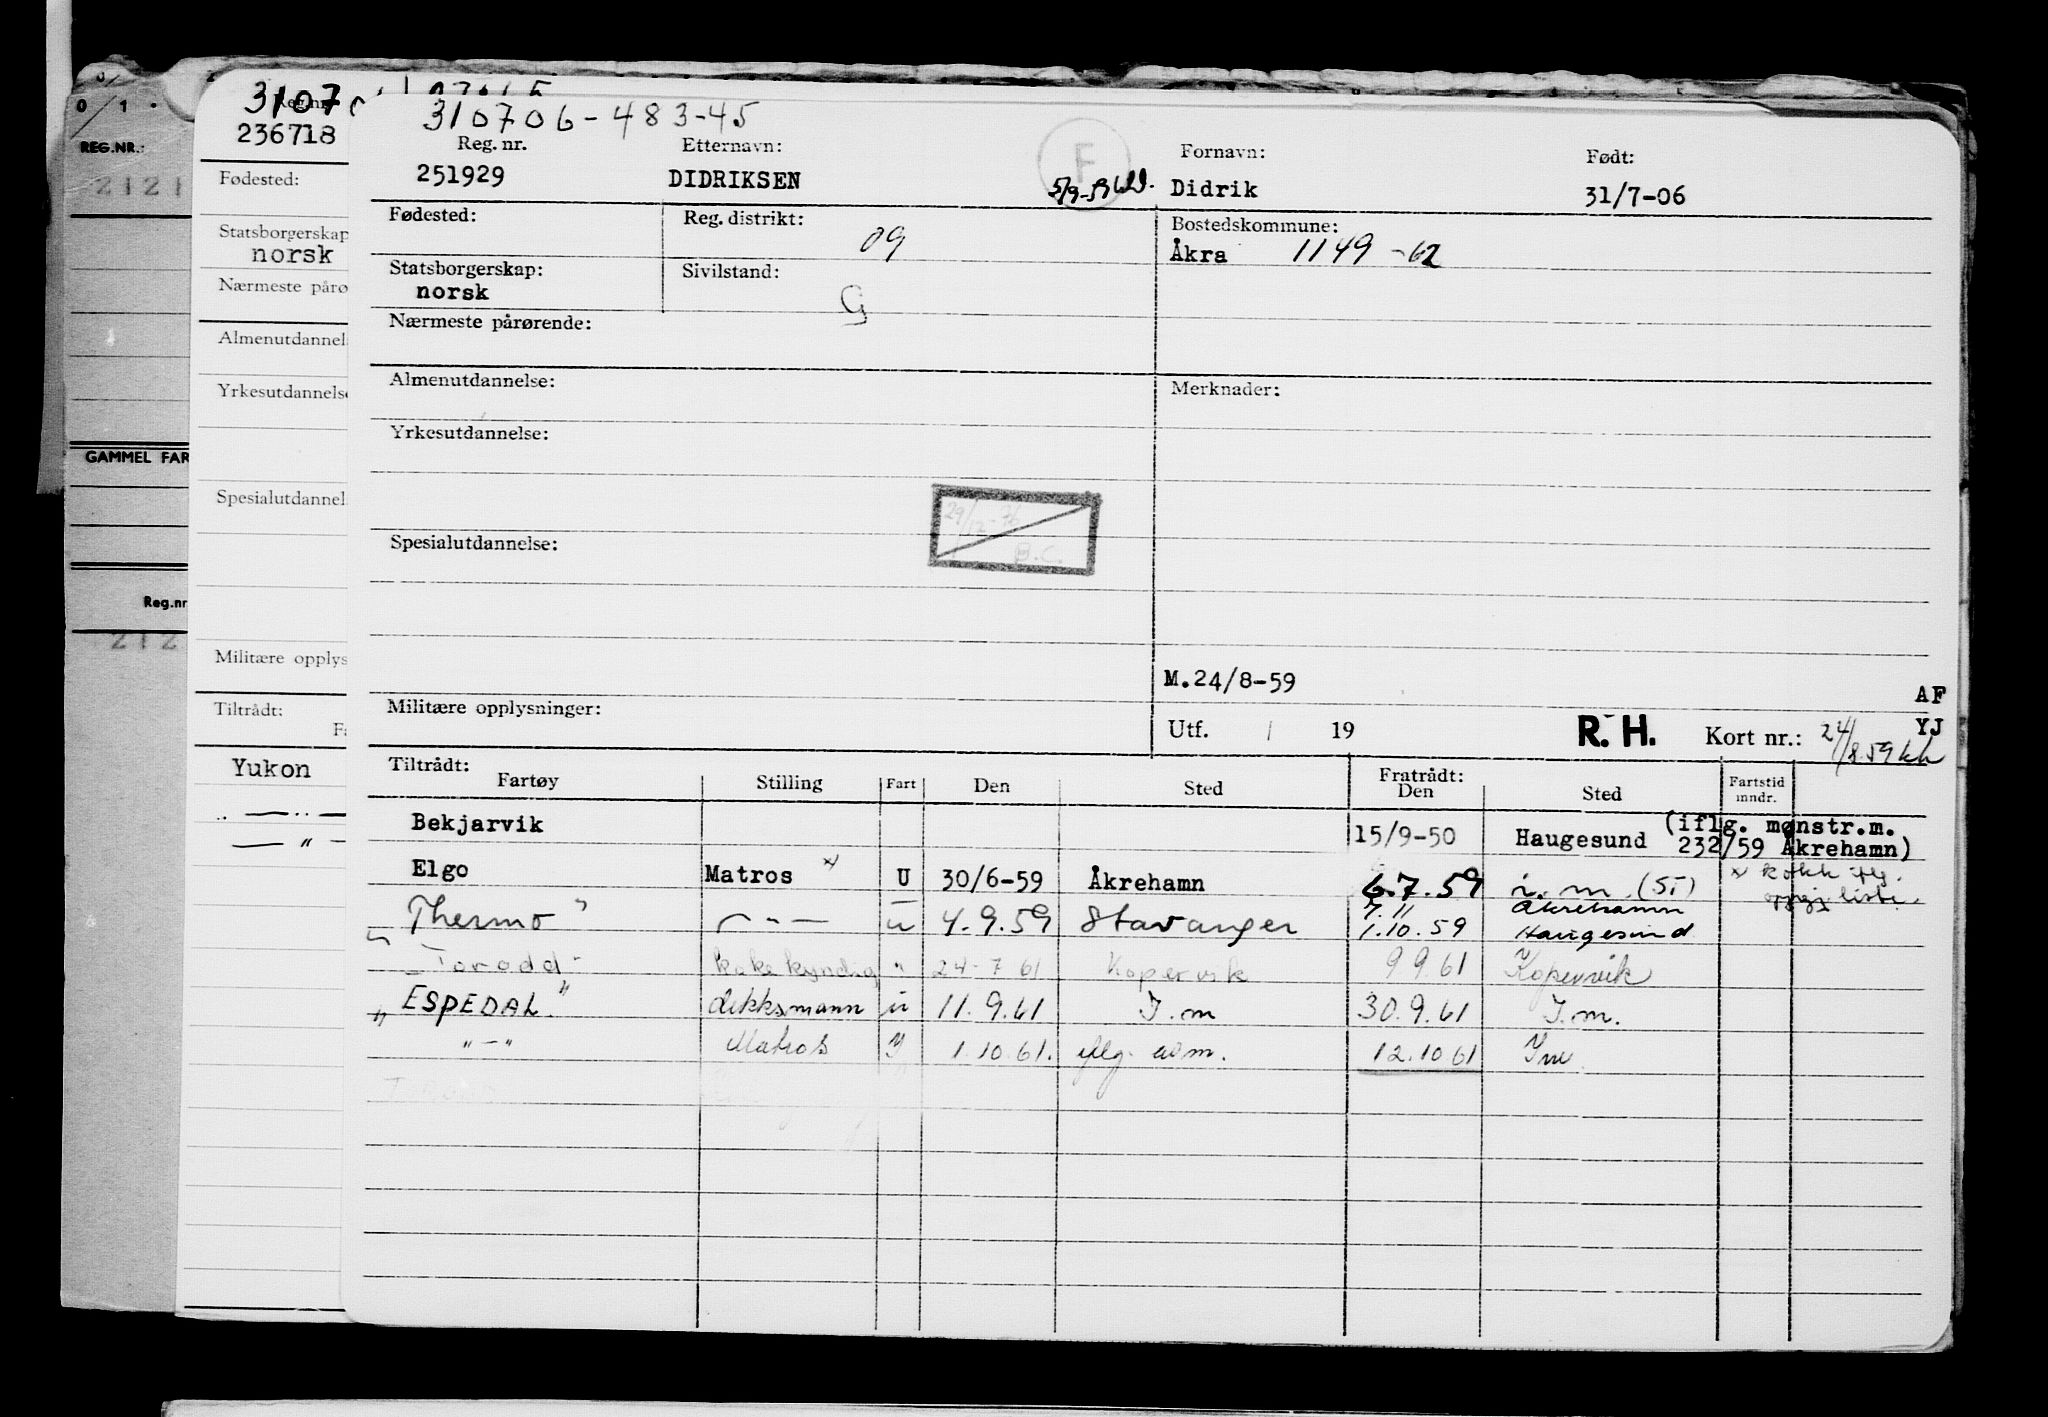 0/1.
REG.NR.:
2121
GAMMEL FAR
Reg.nr
212
3107
236718
Fødested:
Statsborgerskap
norsk
Nærmeste påro
Almenutdannel
Yrkesutdannelse
Spesialutdannel
Militære opplys
Tiltrådt:
Yukon
310706-483-45
Reg. nr. Etternavn: F Fornavn: Født:
251929 DIDRIKSEN 5/9-59 Didrik 31/7-06
Fødested: Reg. distrikt: 09 Bostedskommune:
Åkra 1149 -62
Statsborgerskap: Sivilstand:
norsk G
Nærmeste pårørende:
Almenutdannelse: Merknader:
Yrkesutdannelse:
29/12-76
B.C.
Spesialutdannelse:
M.24/8-59
AF
Militære opplysninger: Utf. / 19 R.H. Kort nr.: YJ
24/8.59 kh
Tiltrådt: Fratrådt:
Fartøy Stilling Fart Den Sted Den Sted Fartstid mndr.
Bekjarvik 15/9-50 Haugesund (iflg. mønstr.m.
232/59 Åkrehamn)
Elgo Matros x/ U 30/6-59 Åkrehamn 6.7.59 i.m. (ST) x kokk iflg.
liste.
7.11 Åkrehamn
"Thermo" -"- u 4.9.59 Stavanger 1.10.59 Haugesund
"Torodd" kokekyndig " 24-7 61 Kopervik 9 9.61 Kopervik
"ESPEDAL" dekksmann u 11.9.61 I.m 30.9.61 I.m.
"-" Matros 1.10.61. iflg. 12.10 61 I m